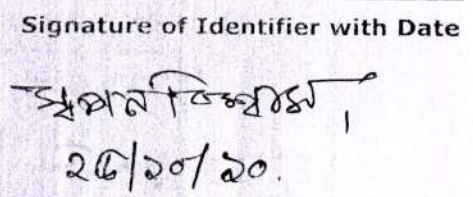 Signature of Identifier with Date
স্বপন বিশ্বাস,
২৫/১০/১০.